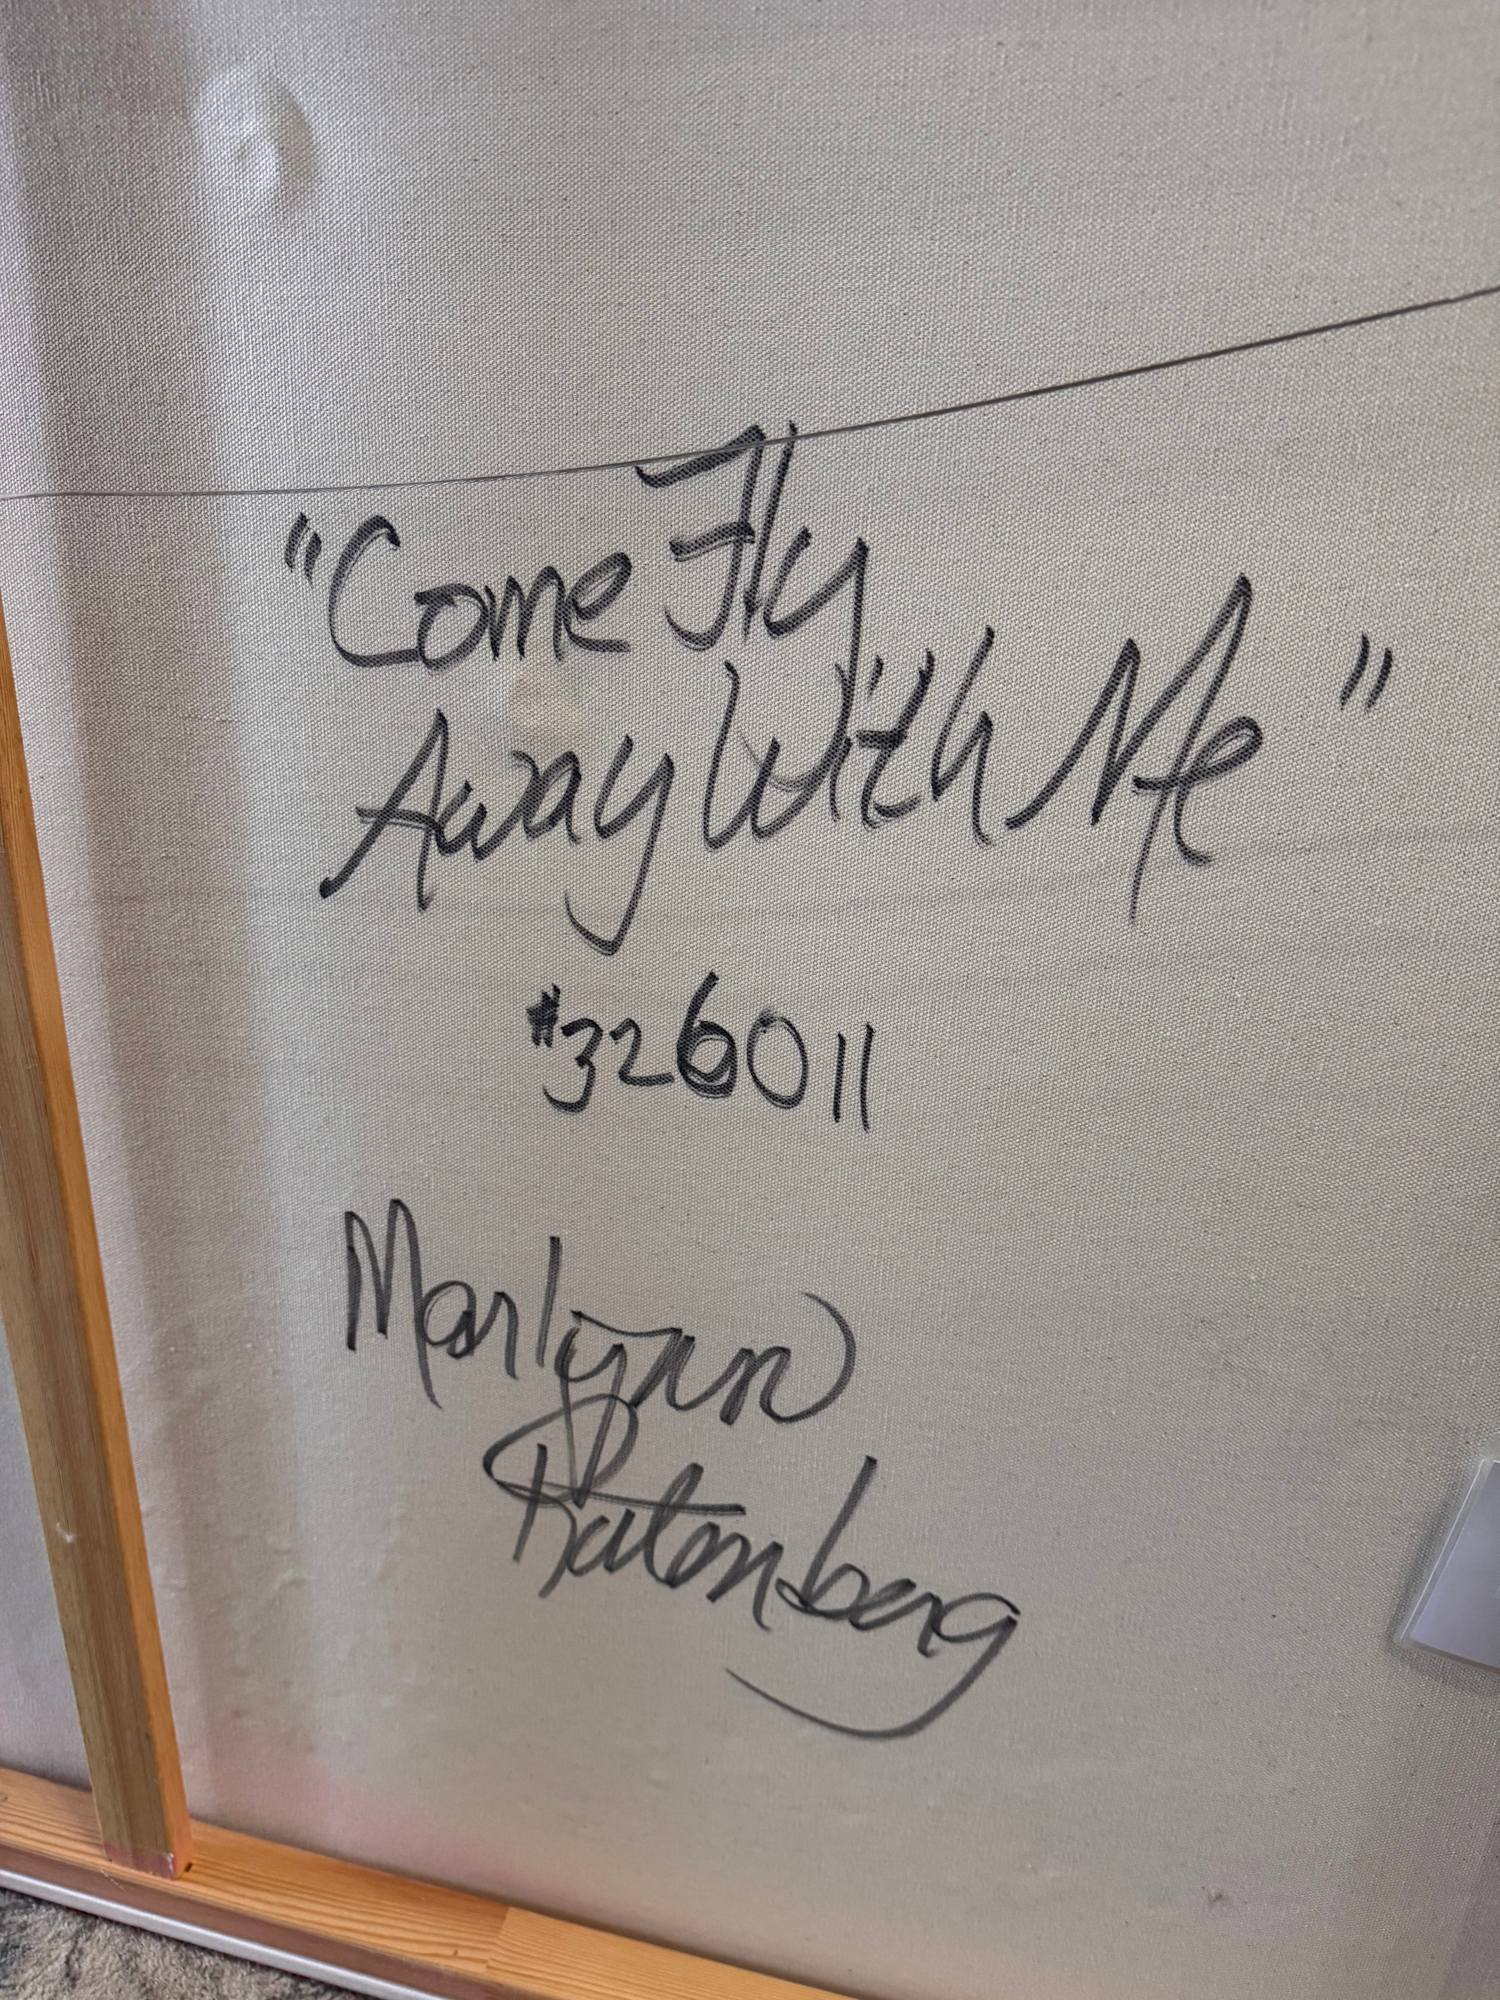 "Come Fly
Away With Me"
#326011
Marlynn
Ratenberg